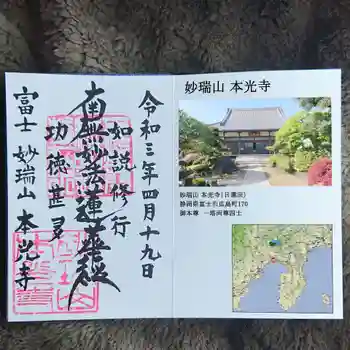 令和三年四月十九日
如説修行
南無妙法蓮華経
功徳甚多
富士 妙瑞山 本光寺
妙瑞山 本光寺
妙瑞山 本光寺(日蓮宗)
静岡県富士市広見町170
御本尊 一塔両尊四士